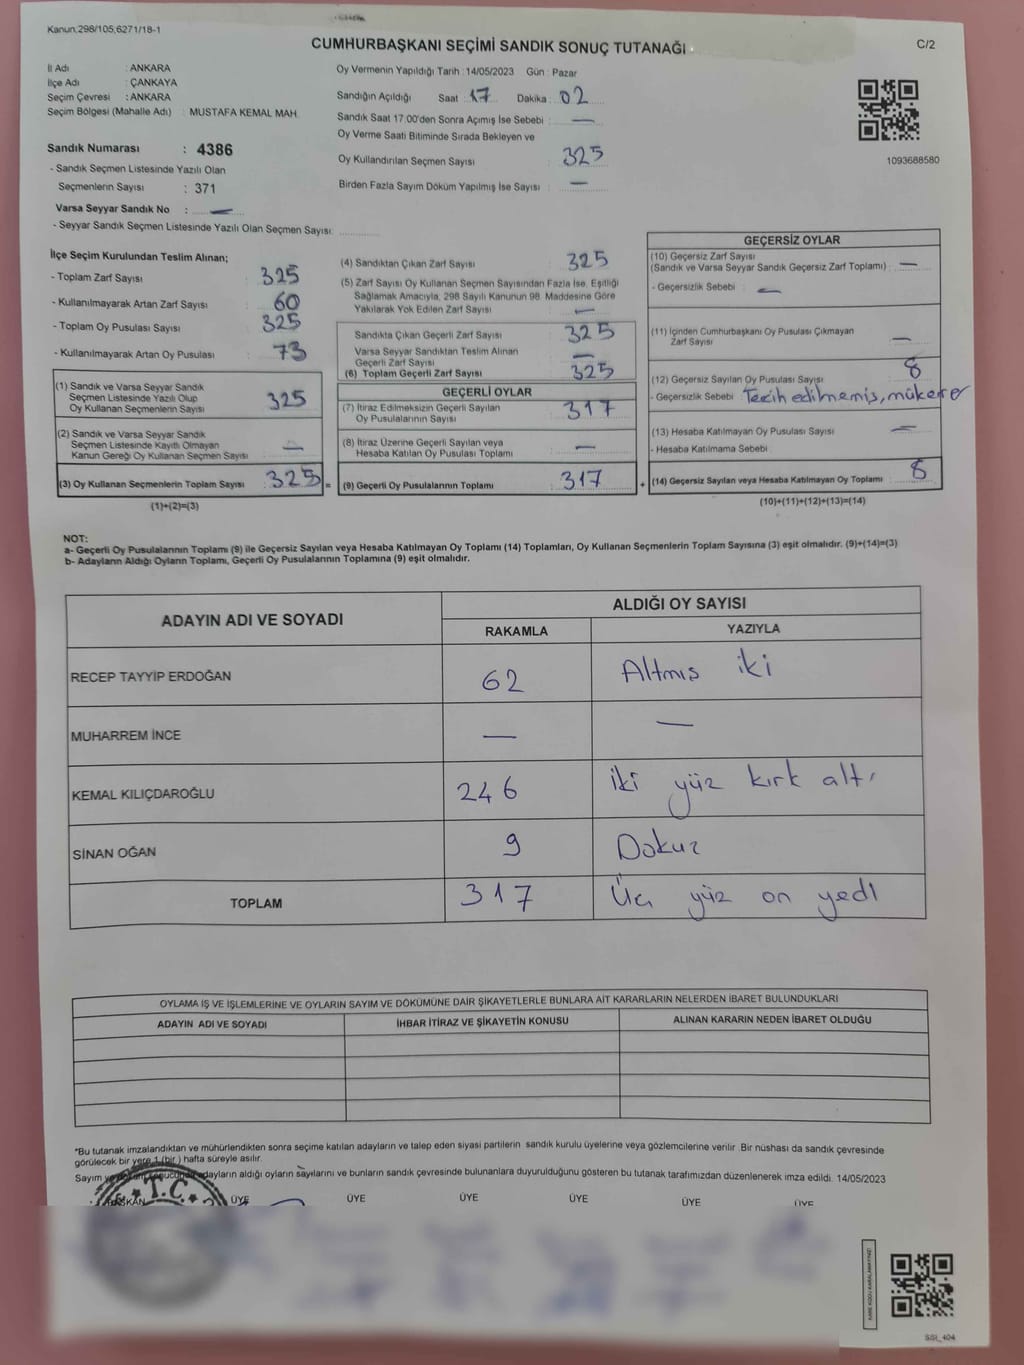 Kanun,298/105,6271/18-1
CUMHURBAŞKANI SEÇİMİ SANDIK SONUÇ TUTANAĞI
C/2
İl Adı : ANKARA
İlçe Adı : ÇANKAYA
Seçim Çevresi : ANKARA
Seçim Bölgesi (Mahalle Adı) : MUSTAFA KEMAL MAH.
Sandık Numarası : 4386
- Sandık Seçmen Listesinde Yazılı Olan
Seçmenlerin Sayısı : 371
Varsa Seyyar Sandık No : —
- Seyyar Sandık Seçmen Listesinde Yazılı Olan Seçmen Sayısı:
Oy Vermenin Yapıldığı Tarih : 14/05/2023 Gün : Pazar
Sandığın Açıldığı Saat : 17 Dakika : 02
Sandık Saat 17:00'den Sonra Açımış İse Sebebi : —
Oy Verme Saati Bitiminde Sırada Bekleyen ve
Oy Kullandırılan Seçmen Sayısı : 325
Birden Fazla Sayım Döküm Yapılmış İse Sayısı : —
1093688580
İlçe Seçim Kurulundan Teslim Alınan;
- Toplam Zarf Sayısı : 325
- Kullanılmayarak Artan Zarf Sayısı : 60
- Toplam Oy Pusulası Sayısı : 325
- Kullanılmayarak Artan Oy Pusulası : 73
(1) Sandık ve Varsa Seyyar Sandık
Seçmen Listesinde Yazılı Olup
Oy Kullanan Seçmenlerin Sayısı : 325
(2) Sandık ve Varsa Seyyar Sandık
Seçmen Listesinde Kayıtlı Olmayan
Kanun Gereği Oy Kullanan Seçmen Sayısı : —
(3) Oy Kullanan Seçmenlerin Toplam Sayısı : 325 =
(1)+(2)=(3)
(4) Sandıktan Çıkan Zarf Sayısı : 325
(5) Zarf Sayısı Oy Kullanan Seçmen Sayısından Fazla İse, Eşitliği
Sağlamak Amacıyla, 298 Sayılı Kanunun 98. Maddesine Göre
Yakılarak Yok Edilen Zarf Sayısı : —
Sandıkta Çıkan Geçerli Zarf Sayısı : 325
Varsa Seyyar Sandıktan Teslim Alınan
Geçerli Zarf Sayısı : —
(6) Toplam Geçerli Zarf Sayısı : 325
GEÇERLİ OYLAR
(7) İtiraz Edilmeksizin Geçerli Sayılan
Oy Pusulalarının Sayısı : 317
(8) İtiraz Üzerine Geçerli Sayılan veya
Hesaba Katılan Oy Pusulası Toplamı : —
(9) Geçerli Oy Pusulalarının Toplamı : 317 +
GEÇERSİZ OYLAR
(10) Geçersiz Zarf Sayısı
(Sandık ve Varsa Seyyar Sandık Geçersiz Zarf Toplamı) : —
- Geçersizlik Sebebi : —
(11) İçinden Cumhurbaşkanı Oy Pusulası Çıkmayan
Zarf Sayısı : —
(12) Geçersiz Sayılan Oy Pusulası Sayısı : 8
- Geçersizlik Sebebi : Tecih edilmemiş, mükerer
(13) Hesaba Katılmayan Oy Pusulası Sayısı : —
- Hesaba Katılmama Sebebi :
(14) Geçersiz Sayılan veya Hesaba Katılmayan Oy Toplamı : 8
(10)+(11)+(12)+(13)=(14)
NOT:
a- Geçerli Oy Pusulalarının Toplamı (9) ile Geçersiz Sayılan veya Hesaba Katılmayan Oy Toplamı (14) Toplamları, Oy Kullanan Seçmenlerin Toplam Sayısına (3) eşit olmalıdır. (9)+(14)=(3)
b- Adayların Aldığı Oyların Toplamı, Geçerli Oy Pusulalarının Toplamına (9) eşit olmalıdır.
ADAYIN ADI VE SOYADI
ALDIĞI OY SAYISI
RAKAMLA YAZIYLA
RECEP TAYYİP ERDOĞAN 62 Altmış iki
MUHARREM İNCE — —
KEMAL KILIÇDAROĞLU 246 iki yüz kırk altı
SİNAN OĞAN 9 Dokuz
TOPLAM 317 Üç yüz on yedi
OYLAMA İŞ VE İŞLEMLERİNE VE OYLARIN SAYIM VE DÖKÜMÜNE DAİR ŞİKAYETLERLE BUNLARA AİT KARARLARIN NELERDEN İBARET BULUNDUKLARI
ADAYIN ADI VE SOYADI İHBAR İTİRAZ VE ŞİKAYETİN KONUSU ALINAN KARARIN NEDEN İBARET OLDUĞU
*Bu tutanak imzalandıktan ve mühürlendikten sonra seçime katılan adayların ve talep eden siyasi partilerin sandık kurulu üyelerine veya gözlemcilerine verilir. Bir nüshası da sandık çevresinde
görülecek bir yere 1 (bir) hafta süreyle asılır.
Sayım ve adayların aldığı oyların sayılarını ve bunların sandık çevresinde bulunanlara duyurulduğunu gösteren bu tutanak tarafımızdan düzenlenerek imza edildi. 14/05/2023
T.C.
ÜYE ÜYE ÜYE ÜYE ÜYE ÜYE
SSI_404